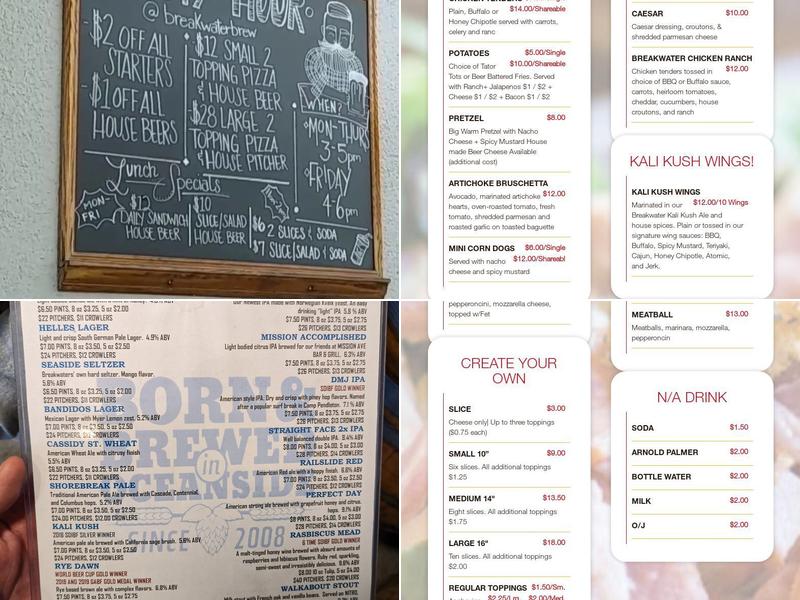 HOUR
@breakwaterbrew
$2 OFF ALL
STARTERS
$1 OFF ALL
HOUSE BEERS
$12 SMALL 2
TOPPING PIZZA
& HOUSE BEER
$28 LARGE 2
TOPPING PIZZA
& HOUSE PITCHER
WHEN?
MON-THURS
3-5pm
FRIDAY
4-6pm
Lunch Specials
MON-
FRI
$13
DAILY SANDWICH
HOUSE BEER
$10
SLICE/SALAD
HOUSE BEER
$6 2 SLICES & SODA
$7 SLICE/SALAD & SODA
Plain, Buffalo or $14.00/Shareable
Honey Chipotle served with carrots,
celery and ranc
POTATOES $5.00/Single
Choice of Tator $10.00/Shareable
Tots or Beer Battered Fries. Served
with Ranch+ Jalapenos $1 / $2 +
Cheese $1 / $2 + Bacon $1 / $2
PRETZEL $8.00
Big Warm Pretzel with Nacho
Cheese + Spicy Mustard House
made Beer Cheese Available
(additional cost)
ARTICHOKE BRUSCHETTA
Avocado, marinated artichoke $12.00
hearts, oven-roasted tomato, fresh
tomato, shredded parmesan and
roasted garlic on toasted baguette
MINI CORN DOGS $6.00/Single
Served with nacho $12.00/Shareabl
cheese and spicy mustard
CAESAR $10.00
Caesar dressing, croutons, &
shredded parmesan cheese
BREAKWATER CHICKEN RANCH
Chicken tenders tossed in $12.00
choice of BBQ or Buffalo sauce,
carrots, heirloom tomatoes,
cheddar, cucumbers, house
croutons, and ranch
KALI KUSH WINGS!
KALI KUSH WINGS
Marinated in our $12.00/10 Wings
Breakwater Kali Kush Ale and
house spices. Plain or tossed in our
signature wing sauces: BBQ,
Buffalo, Spicy Mustard, Teriyaki,
Cajun, Honey Chipotle, Atomic,
and Jerk.
$6.50 PINTS, 8 oz $3.25, 5 oz $2.00
$22 PITCHERS, $11 CROWLERS
HELLES LAGER
Light and crisp South German Pale Lager. 4.9% ABV
$7.00 PINTS, 8 oz $3.50, 5 oz $2.50
$24 PITCHERS, $12 CROWLERS
SEASIDE SELTZER
Breakwaters' own hard seltzer. Mango flavor.
5.8% ABV
$6.50 PINTS, 8 oz $3.25, 5 oz $2.00
$22 PITCHERS, $11 CROWLERS
BANDIDOS LAGER
Mexican Lager with Myer Lemon zest. 5.2% ABV
$7.00 PINTS, 8 oz $3.50, 5 oz $2.50
$24 PITCHERS, $12 CROWLERS
CASSIDY ST. WHEAT
American Wheat Ale with citrusy finish
5.5% ABV
$6.50 PINTS, 8 oz $3.25, 5 oz $2.00
$22 PITCHERS, $11 CROWLERS
SHOREBREAK PALE
Traditional American Pale Ale brewed with Cascade, Centennial,
and Columbus hops. 5.2% ABV
$7.00 PINTS, 8 oz $3.50, 5 oz $2.50
$24.00 PITCHERS, $12.00 CROWLERS
KALI KUSH
2016 SDIBF SILVER WINNER
American pale ale brewed with California sage brush. 5.6% ABV
$7.00 PINTS, 8 oz $3.50, 5 oz $2.50
$24 PITCHERS, $12 CROWLERS
RYE DAWN
WORLD BEER CUP GOLD WINNER
2018 AND 2019 GABF GOLD MEDAL WINNER
Rye based brown ale with complex flavors. 6.6% ABV
$7.00 PINTS, 8 oz $3.50, 5 oz $2.50
Our newest IPA made with Norwegian Kveik yeast. An easy
drinking "light" IPA 5.8 % ABV
$7.50 PINTS, 8 oz $3.75, 5 oz $2.75
$26 PITCHERS, $13 CROWLERS
MISSION ACCOMPLISHED
Light bodied citrus IPA brewed for our friends at MISSION AVE
BAR & GRILL. 6.3% ABV
$7.50 PINTS, 8 oz $3.75, 5 oz $2.75
$26 PITCHERS, $13 CROWLERS
DMJ IPA
SDIBF GOLD WINNER
American style IPA. Dry and crisp with piney hop flavors. Named
after a popular surf break in Camp Pendleton. 7.1 % ABV
$7.50 PINTS, 8 oz $3.75, 5 oz $2.75
$26 PITCHERS, $13 CROWLERS
STRAIGHT FACE 2x IPA
Well balanced double IPA. 8.4% ABV
$8.00 PINTS, 8 oz $4.00, 5 oz $3.00
$28 PITCHERS, $14 CROWLERS
RAILSLIDE RED
American Red ale with a hoppy finish. 6.6% ABV
$7.00 PINTS, 8 oz $3.50, 5 oz $2.50
$24 PITCHERS, $12 CROWLERS
PERFECT DAY
American strong ale brewed with grapefruit honey and citrus
hops. 9.1% ABV
$8 PINTS, 8 oz $4.00, 5 oz $3.00
$28 PITCHERS, $14 CROWLERS
RASBISCUS MEAD
6 TIME SDIBF GOLD WINNER
A malt-tinged honey wine brewed with absurd amounts of
raspberries and hibiscus flowers. Ruby red, sparkling,
semi-sweet and irresistibly delicious. 8.6% ABV
$8.00 10 oz Tulip, 5 oz $4.00
$40 PITCHERS, $20 CROWLERS
WALKABOUT STOUT
BORN &
BREWED
in
OCEANSIDE
SINCE 2008
pepperoncini, mozzarella cheese,
topped w/Fet
CREATE YOUR
OWN
SLICE $3.00
Cheese only| Up to three toppings
($0.75 each)
SMALL 10" $9.00
Six slices. All additional toppings
$1.25
MEDIUM 14" $13.50
Eight slices. All additional toppings
$1.75
LARGE 16" $18.00
Ten slices. All additional toppings
$2.00
REGULAR TOPPINGS $1.50/Sm.
MEATBALL $13.00
Meatballs, marinara, mozzarella,
pepperoncin
N/A DRINK
SODA $1.50
ARNOLD PALMER $2.00
BOTTLE WATER $2.00
MILK $2.00
O/J $2.00